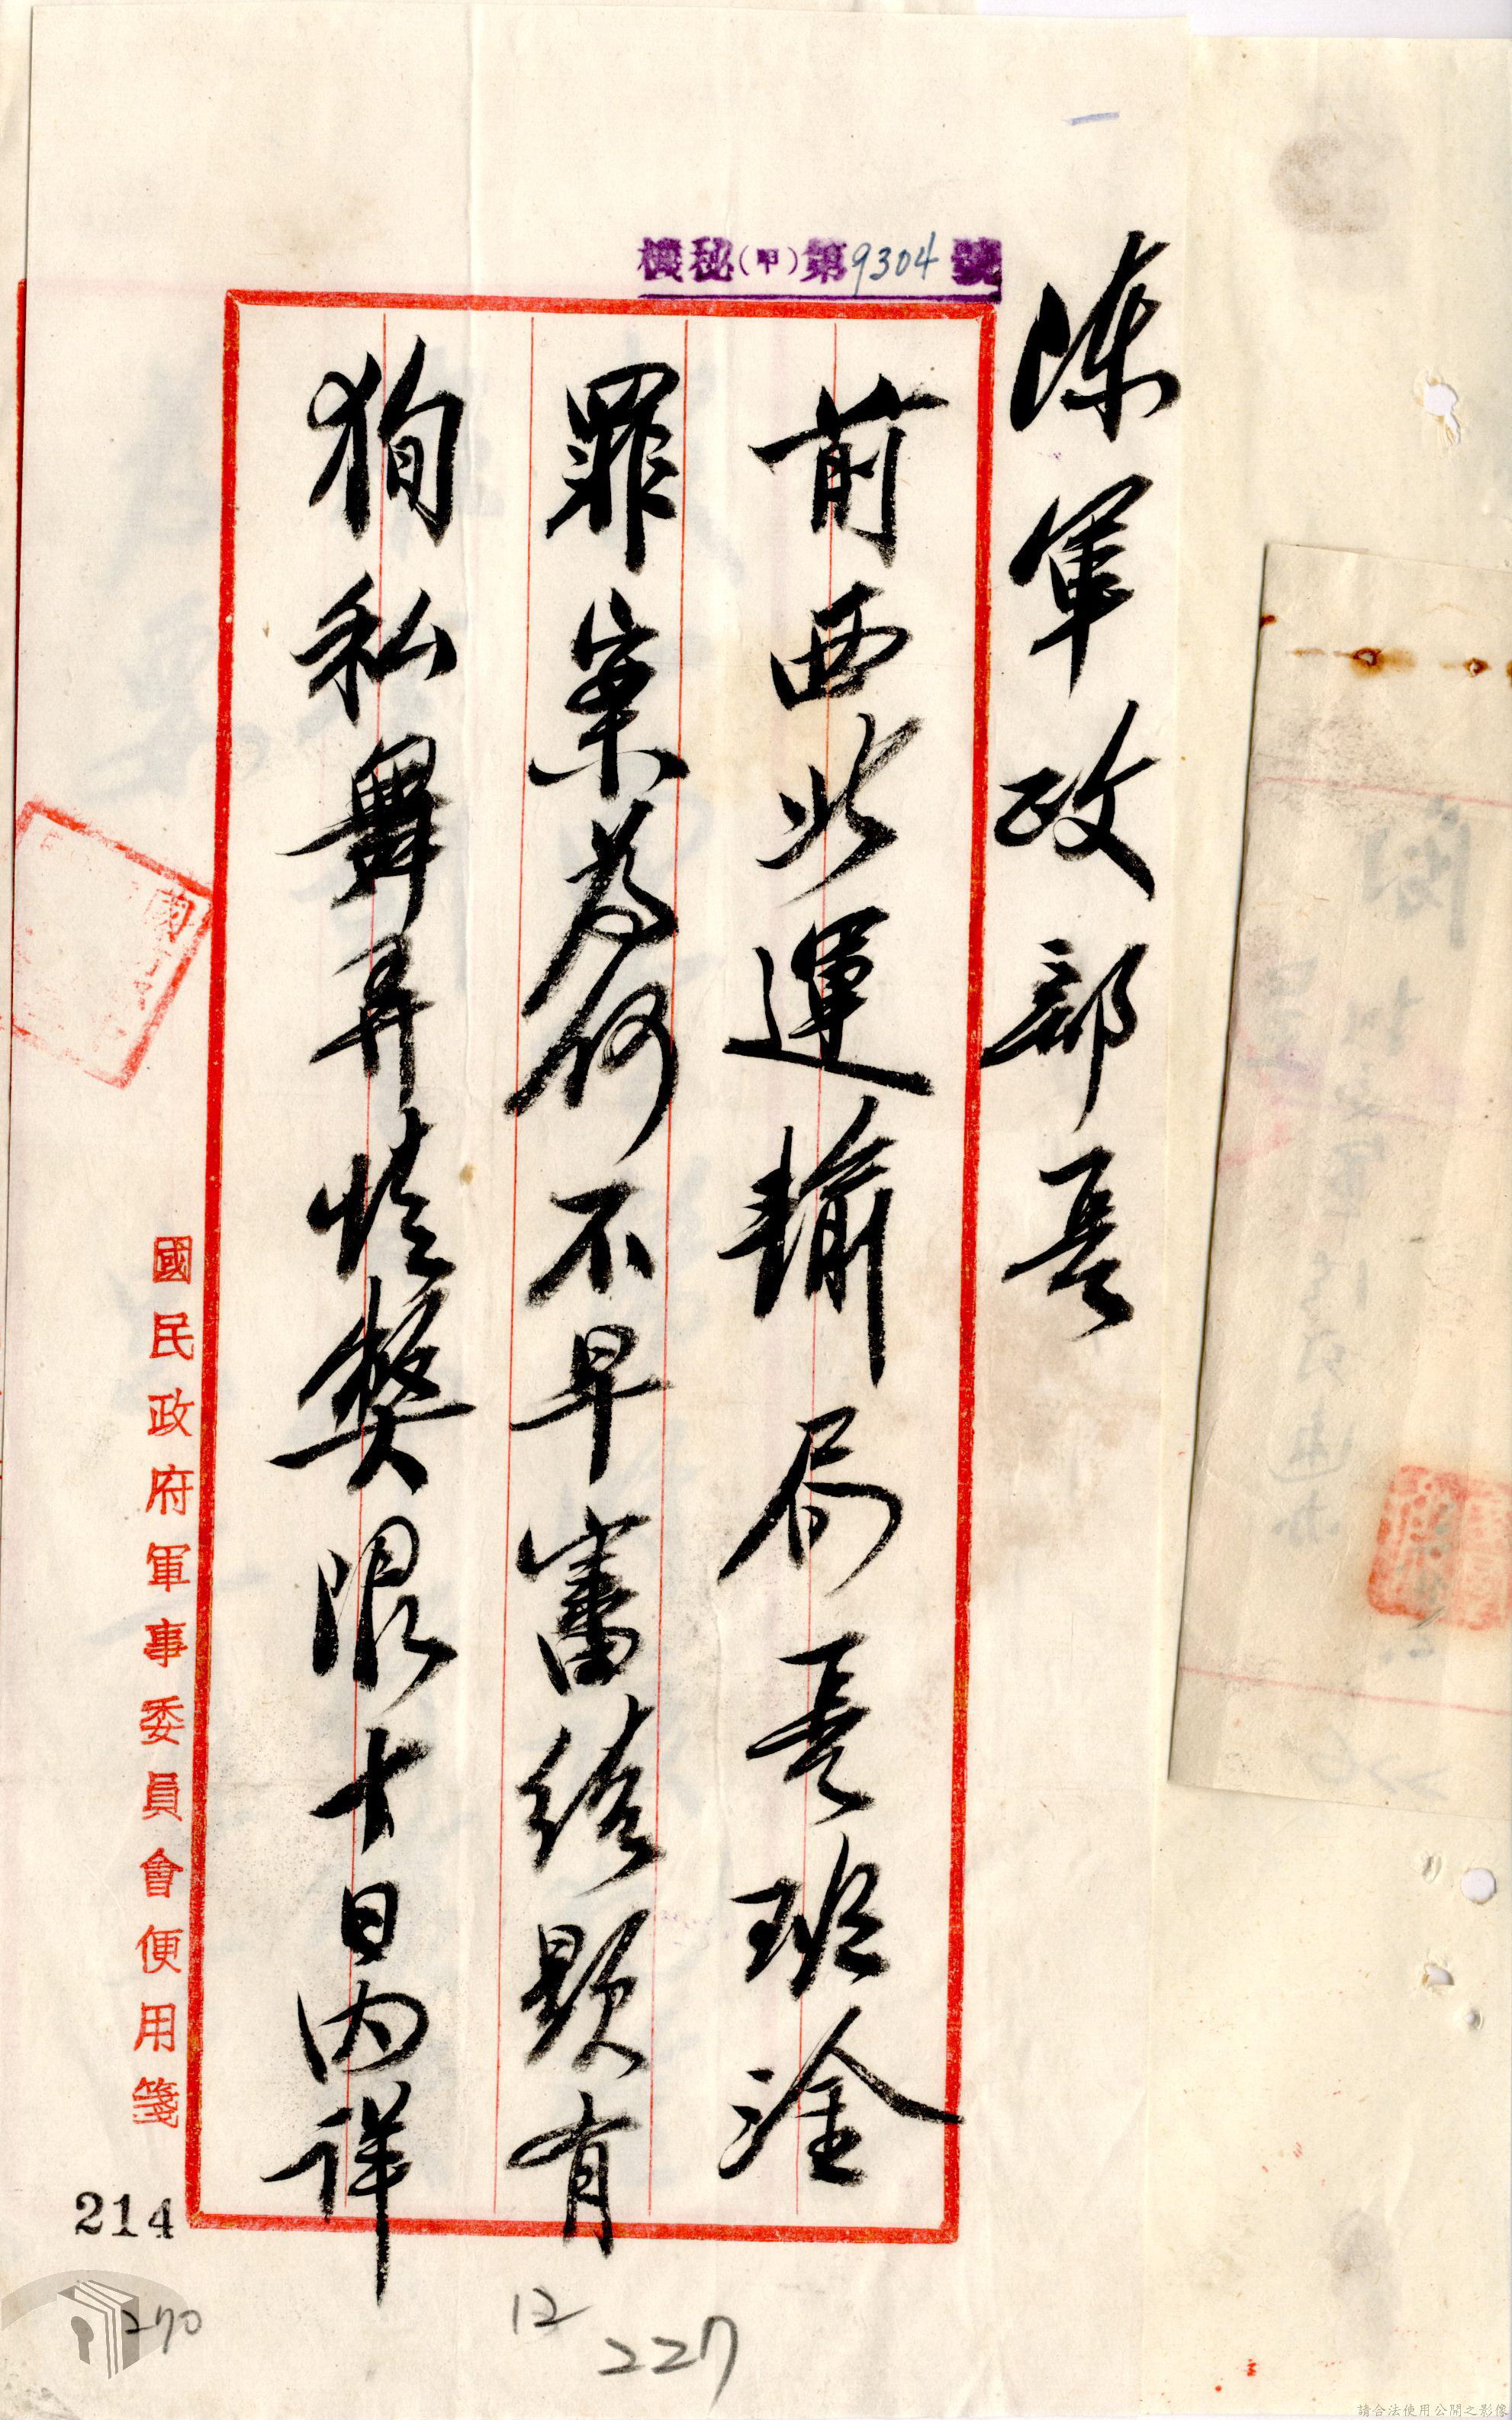 機秘(甲)第9304號
陳軍政部長
前西北運輸局長班淦
罪案為何不早審結顯有
狥私舞弄情弊限十日內詳
國民政府軍事委員會便用箋
214
270
12
227
請合法使用公開之影像